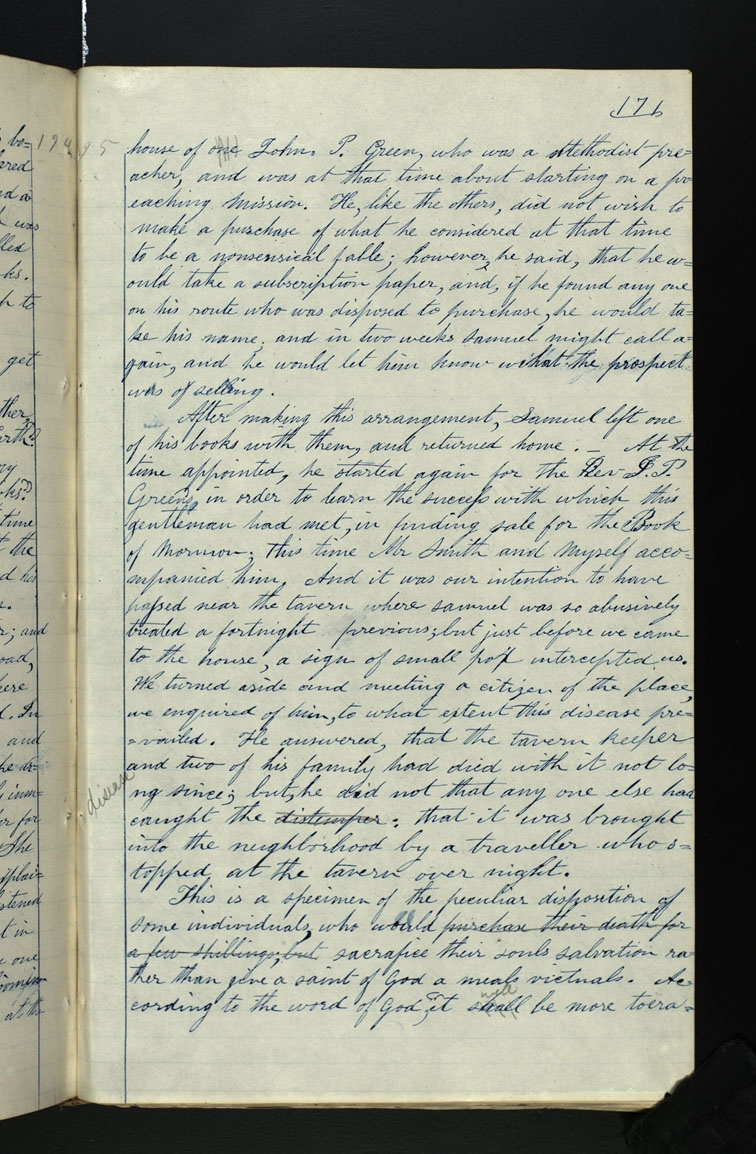 171
house of one John P. Green, who was a Methodist pre=
acher, and was at that time about starting on a pr
eaching mission. He, like the others, did not wish to
make a purchase of what he considered at that time
to be a nonsensical fable; however, he said, that he w=
ould take a subscription paper, and, if he found any one
on his route who was disposed to purchase, he would ta=
ke his name, and in two weeks Samuel might call a=
gain, and he would let him know what the prospect
was of selling.
After making this arrangement, Samuel left one
of his books with them, and returned home. — At the
time appointed, he started again for the Rev J. P.
Greens, in order to learn the success with which this
gentleman had met, in finding sale for the Book
of Mormon. This time Mr Smith and myself acco=
mpanied him, And it was our intention to have
passed near the tavern where samuel was so abusively
treated a fortnight previous; but just before we came
to the house, a sign of small pox intercepted us.
We turned aside and meeting a citizen of the place,
we enquired of him, to what extent this disease pre=
=vailed. He answered, that the tavern keeper
and two of his family had died with it not lo=
ng since; but, he did not that any one else had
disease
caught the distemper: that it was brought
into the neighborhood by a traveller who s=
topped at the tavern over night.
This is a specimen of the peculiar disposition of
some individuals, who would purchase their death for
a few shillings, but sacrafice their souls salvation ra=
ther than give a saint of God a meals victuals. Ac
cording to the word of God, it shall be more tolra=
will